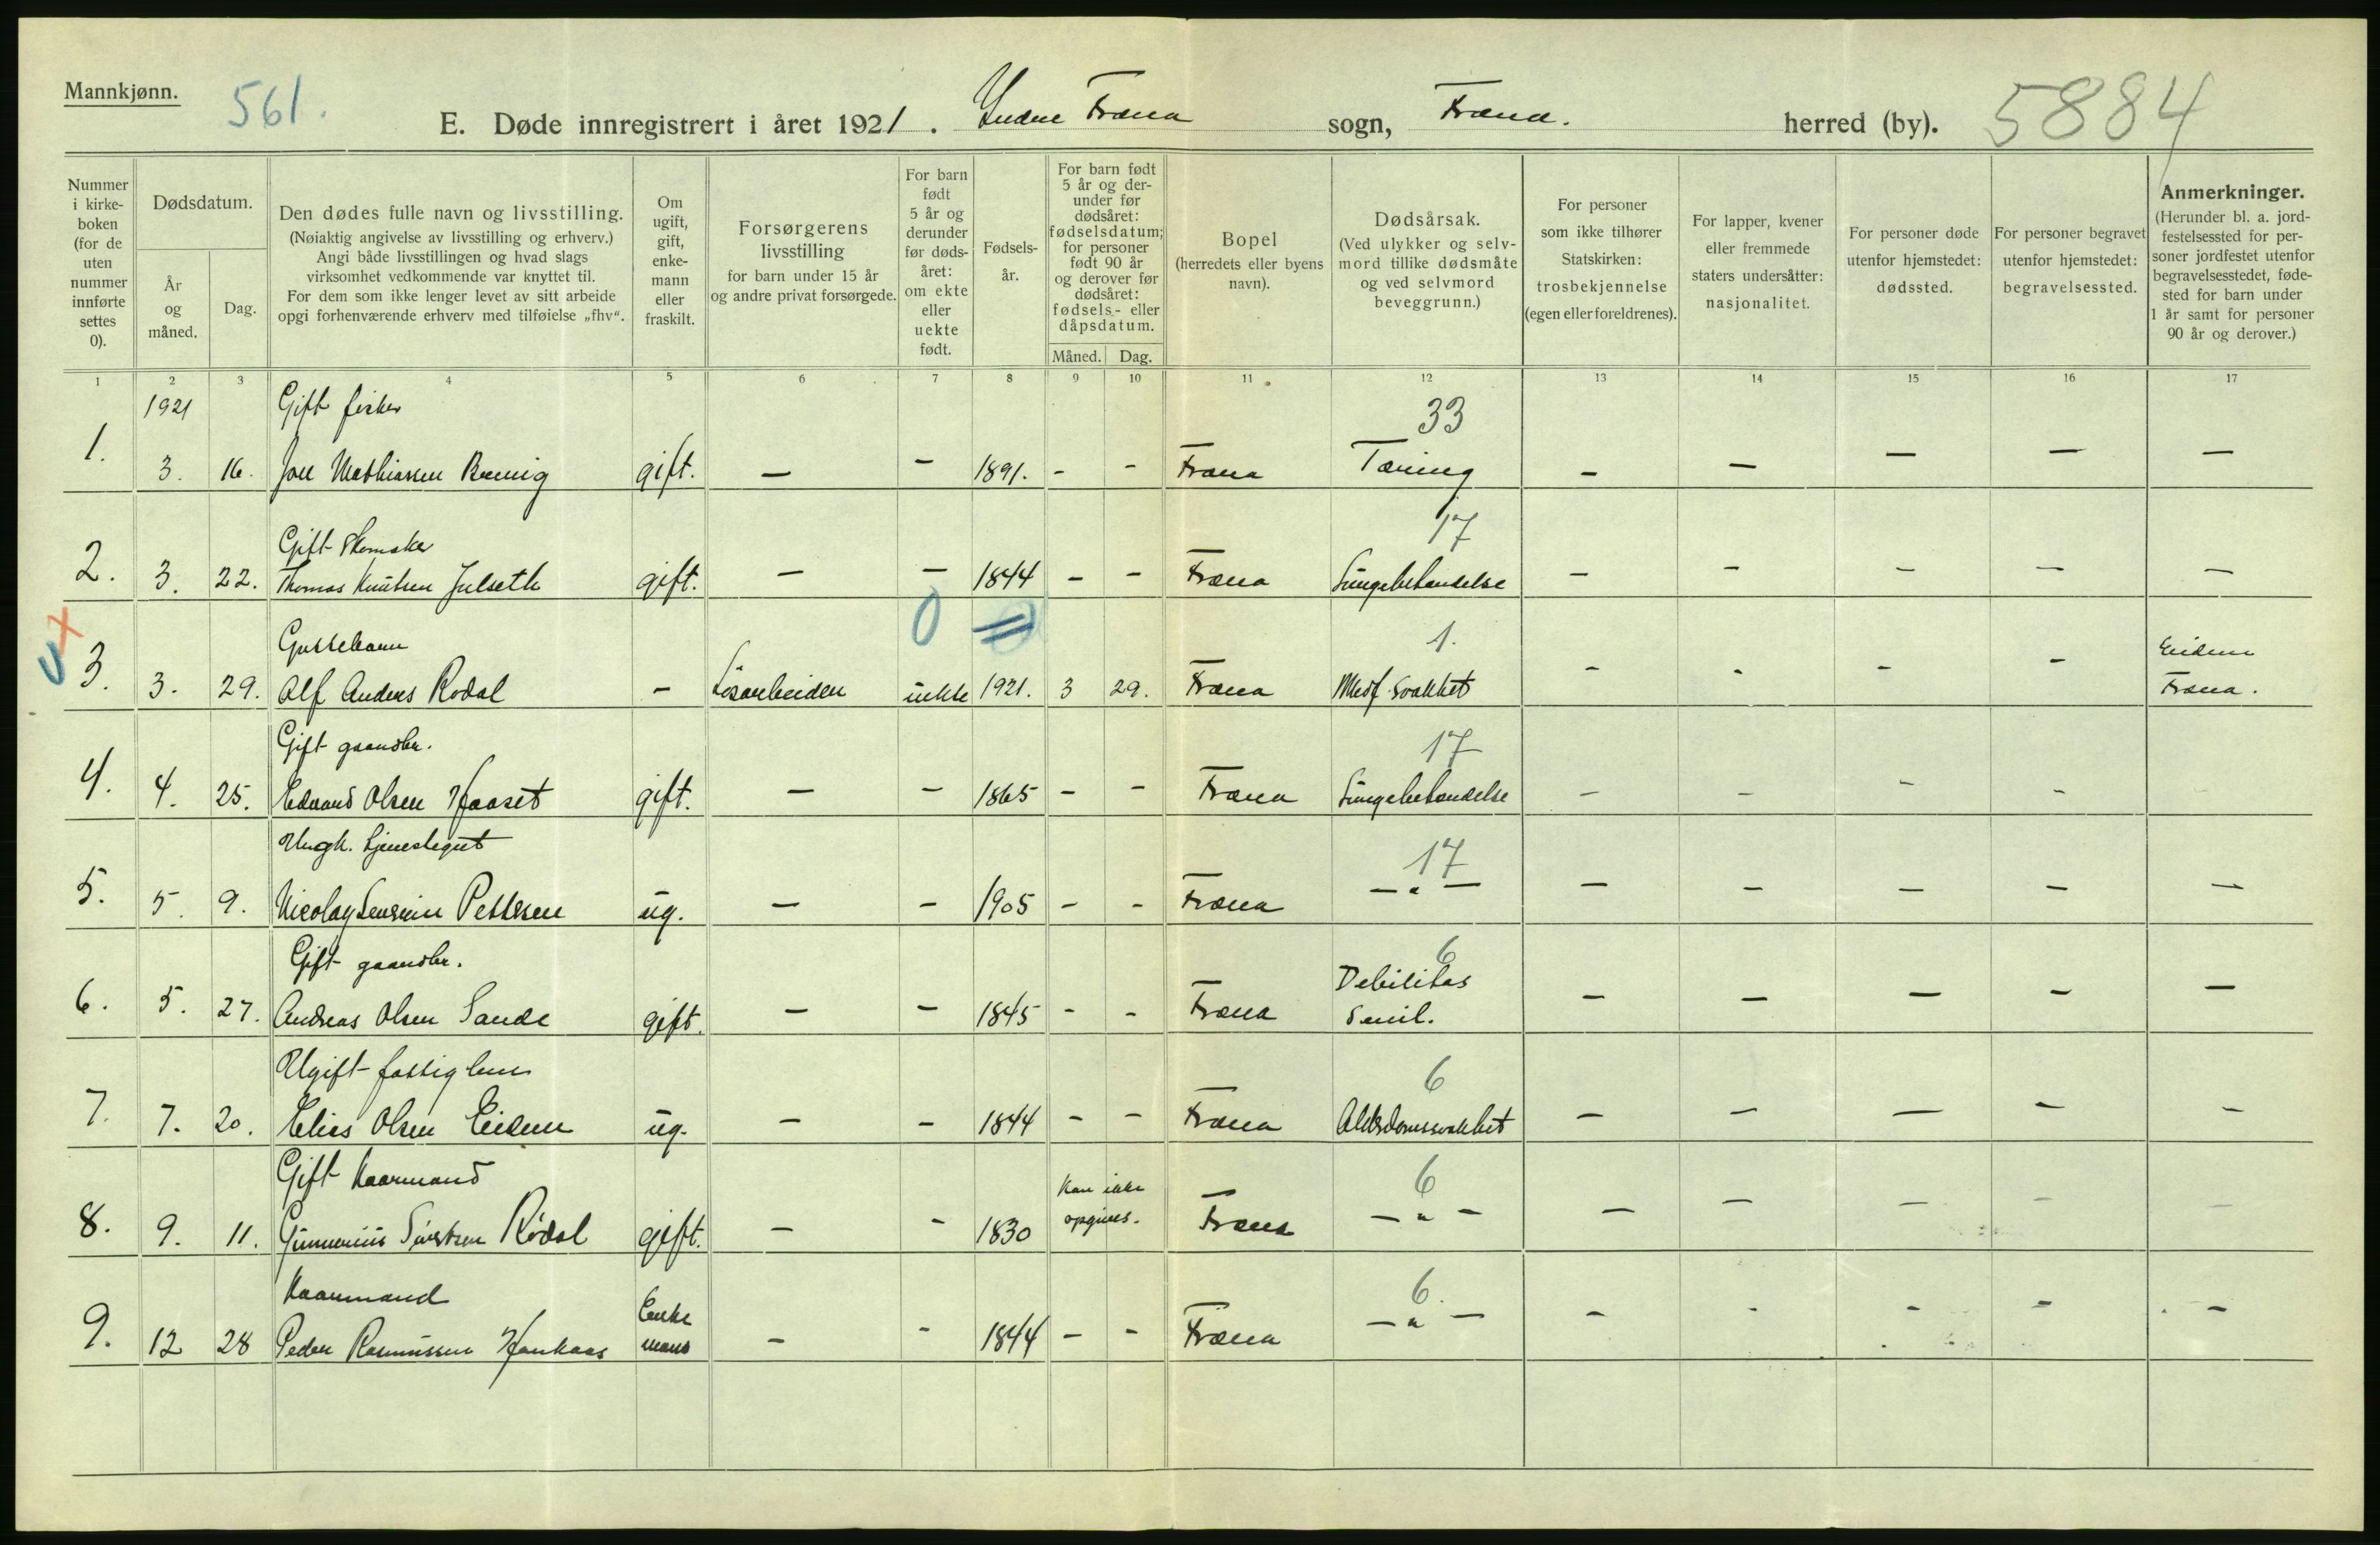 Mannkjønn.
561.
E. Døde innregistrert i året 1921. Indre Fræna sogn, Fræna. herred (by). 5884
Nummer i kirke-boken (for de uten nummer innførte settes 0).
Dødsdatum.
År og måned.
Dag.
Den dødes fulle navn og livsstilling.
(Nøiaktig angivelse av livsstilling og erhverv.)
Angi både livsstillingen og hvad slags
virksomhet vedkommende var knyttet til.
For dem som ikke lenger levet av sitt arbeide
opgi forhenværende erhverv med tilføielse „fhv“.
Om ugift, gift, enke-mann eller fraskilt.
Forsørgerens livsstilling
for barn under 15 år
og andre privat forsørgede.
For barn født 5 år og derunder før døds-året: om ekte eller uekte født.
Fødsels-år.
For barn født 5 år og der-under før dødsåret: fødselsdatum; for personer født 90 år og derover før dødsåret: fødsels- eller dåpsdatum.
Måned. Dag.
Bopel
(herredets eller byens navn).
Dødsårsak.
(Ved ulykker og selv-
mord tillike dødsmåte
og ved selvmord
beveggrunn.)
For personer
som ikke tilhører
Statskirken:
trosbekjennelse
(egen eller foreldrenes).
For lapper, kvener
eller fremmede
staters undersåtter:
nasjonalitet.
For personer døde
utenfor hjemstedet:
dødssted.
For personer begravet
utenfor hjemstedet:
begravelsessted.
Anmerkninger.
(Herunder bl. a. jord-
festelsessted for per-
soner jordfestet utenfor
begravelsesstedet, føde-
sted for barn under
1 år samt for personer
90 år og derover.)
1 2 3 4 5 6 7 8 9 10 11 12 13 14 15 16 17
1921 Gift fisker 33
1. 3. 16. Jon Mathiassen gift. — — 1891. - - Fræna Tæring — — — — —
Gift Skomaker 17
2. 3. 22. Thomas Knutsen Julseth gift. — — 1844 - - Fræna Lungebetændelse — - - — —
0
Guttebarn 1. Eidem
3. 3. 29. Alf Anders Rødal - Løsarbeider uekte 1921. 3 29. Fræna Medf. svakhet - - - - Fræna.
Gift gaardbr. 17
4. 4. 25. Edvard Olsen Haaset gift. — — 1865 - - Fræna Lungebetændelse — — - - -
Ungk. tjenestegut 17
5. 5. 9. Nicolay Severin Pettersen ug. — — 1905 - - Fræna — " — — — — — —
Gift gaardbr. 6
6. 5. 27. Andreas Olsen Sande gift. — — 1845 - - Fræna Debilitas Senil. — — — — —
Ugift fattiglem 6
7. 7. 20. Elias Olsen Eidem ug. — — 1844 - - Fræna Alderdomssvakhet — — — — -
Gift kaarmand Kan ikke 6
8. 9. 11. Gunnerius Sivertsen Rødal gift. — - 1830 opgives. Fræna — " — — — — — —
Kaarmand Enke 6.
9. 12 28 Peder Rasmussen Haukaas mand — - 1844 - - Fræna — " — - - - - -